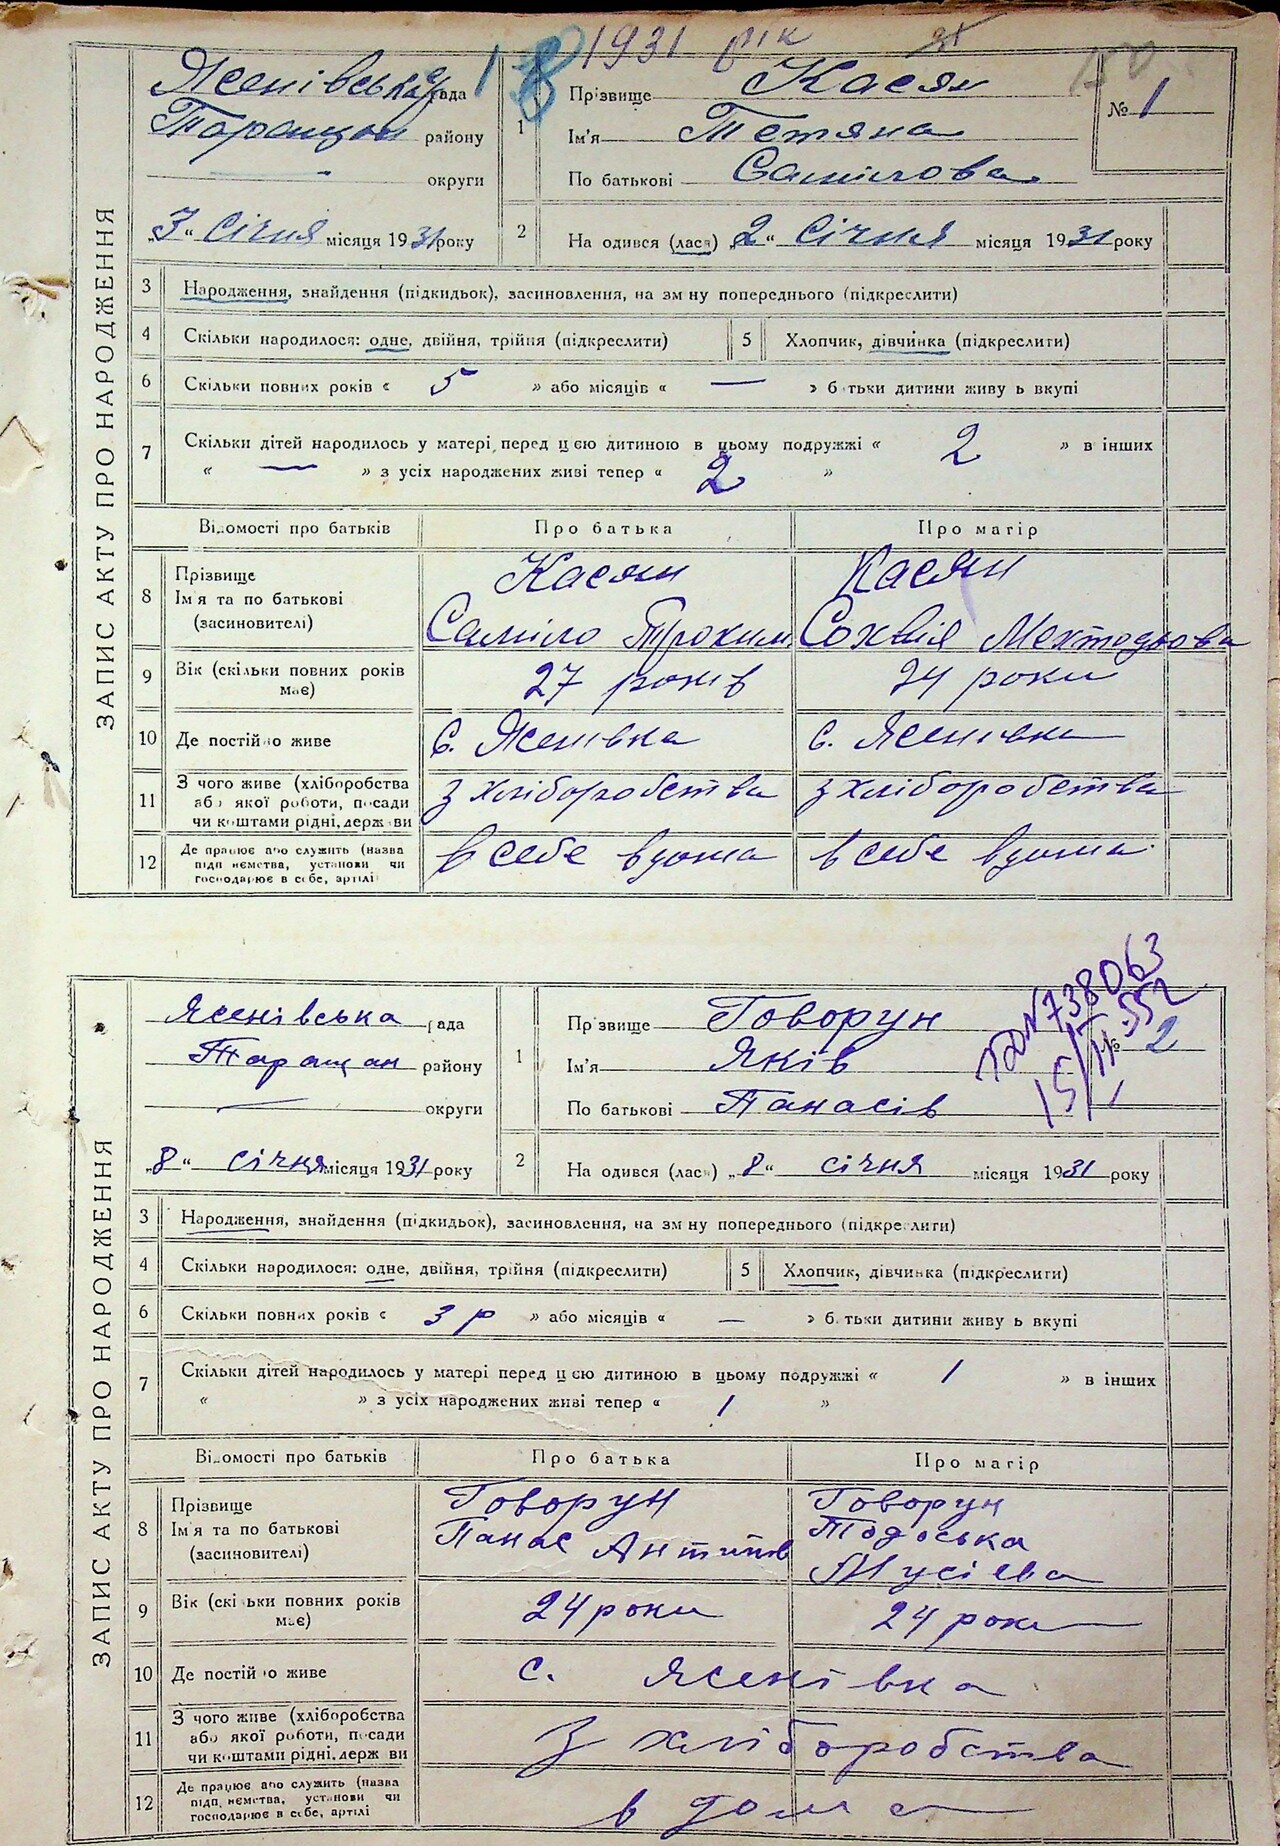 1931 рік
Ясенівська рада
Таращан району
округи
„3“ Січня місяця 1931 року
1
Прізвище Касян
Ім'я Тетяна
По батькові Самілова
№ 1
2
На одився (лася) „2“ Січня місяця 1931 року
ЗАПИС АКТУ ПРО НАРОДЖЕННЯ
3 Народження, знайдення (підкидьок), засиновлення, на зм ну попереднього (підкреслити)
4 Скільки народилося: одне, двійня, трійня (підкреслити) 5 Хлопчик, дівчинка (підкреслити)
6 Скільки повних років « 5 » або місяців « — » б тьки дитини живу ь вкупі
7 Скільки дітей народилось у матері перед цією дитиною в цьому подружжі « 2 » в інших
« — » з усіх народжених живі тепер « 2 »
Відомості про батьків Про батька Про матір
8 Прізвище Ім'я та по батькові (засиновителі)
Касян Касян
Саміло Трохим. Сохвія Мехтодьова
9 Вік (скільки повних років має) 27 років 24 роки
10 Де постійно живе с. Ясенівка с. Ясенівка
11 З чого живе (хліборобства або якої роботи, посади чи коштами рідні, держ ви
з хліборобства з хліборобства
12 Де працює або служить (назва підп иємства, установи чи господарює в себе, артілі
в себе вдома в себе вдома
№738063
Ясенівська рада
Таращан району
— округи
„8“ січня місяця 1931 року
1
Прізвище Говорун
Ім'я Яків
По батькові Панасів
№ 2
2
На одився (лася) „8“ січня місяця 1931 року
ЗАПИС АКТУ ПРО НАРОДЖЕННЯ
3 Народження, знайдення (підкидьок), засиновлення, на зм ну попереднього (підкреслити)
4 Скільки народилося: одне, двійня, трійня (підкреслити) 5 Хлопчик, дівчинка (підкреслити)
6 Скільки повних років « 3 р » або місяців « — » б тьки дитини живу ь вкупі
7 Скільки дітей народилось у матері перед цією дитиною в цьому подружжі « 1 » в інших
« » з усіх народжених живі тепер « 1 »
Відомості про батьків Про батька Про матір
8 Прізвище Ім'я та по батькові (засиновителі)
Говорун Говорун
Панас Антипів Тодоська
Мусієва
9 Вік (скі ьки повних років має) 24 роки 24 роки
10 Де постійно живе с. Ясенівка
11 З чого живе (хліборобства або якої роботи, посади чи коштами рідні, держ ви
З хліборобства
12 Де працює або служить (назва підп иємства, установи чи господарює в себе, артілі
в дома